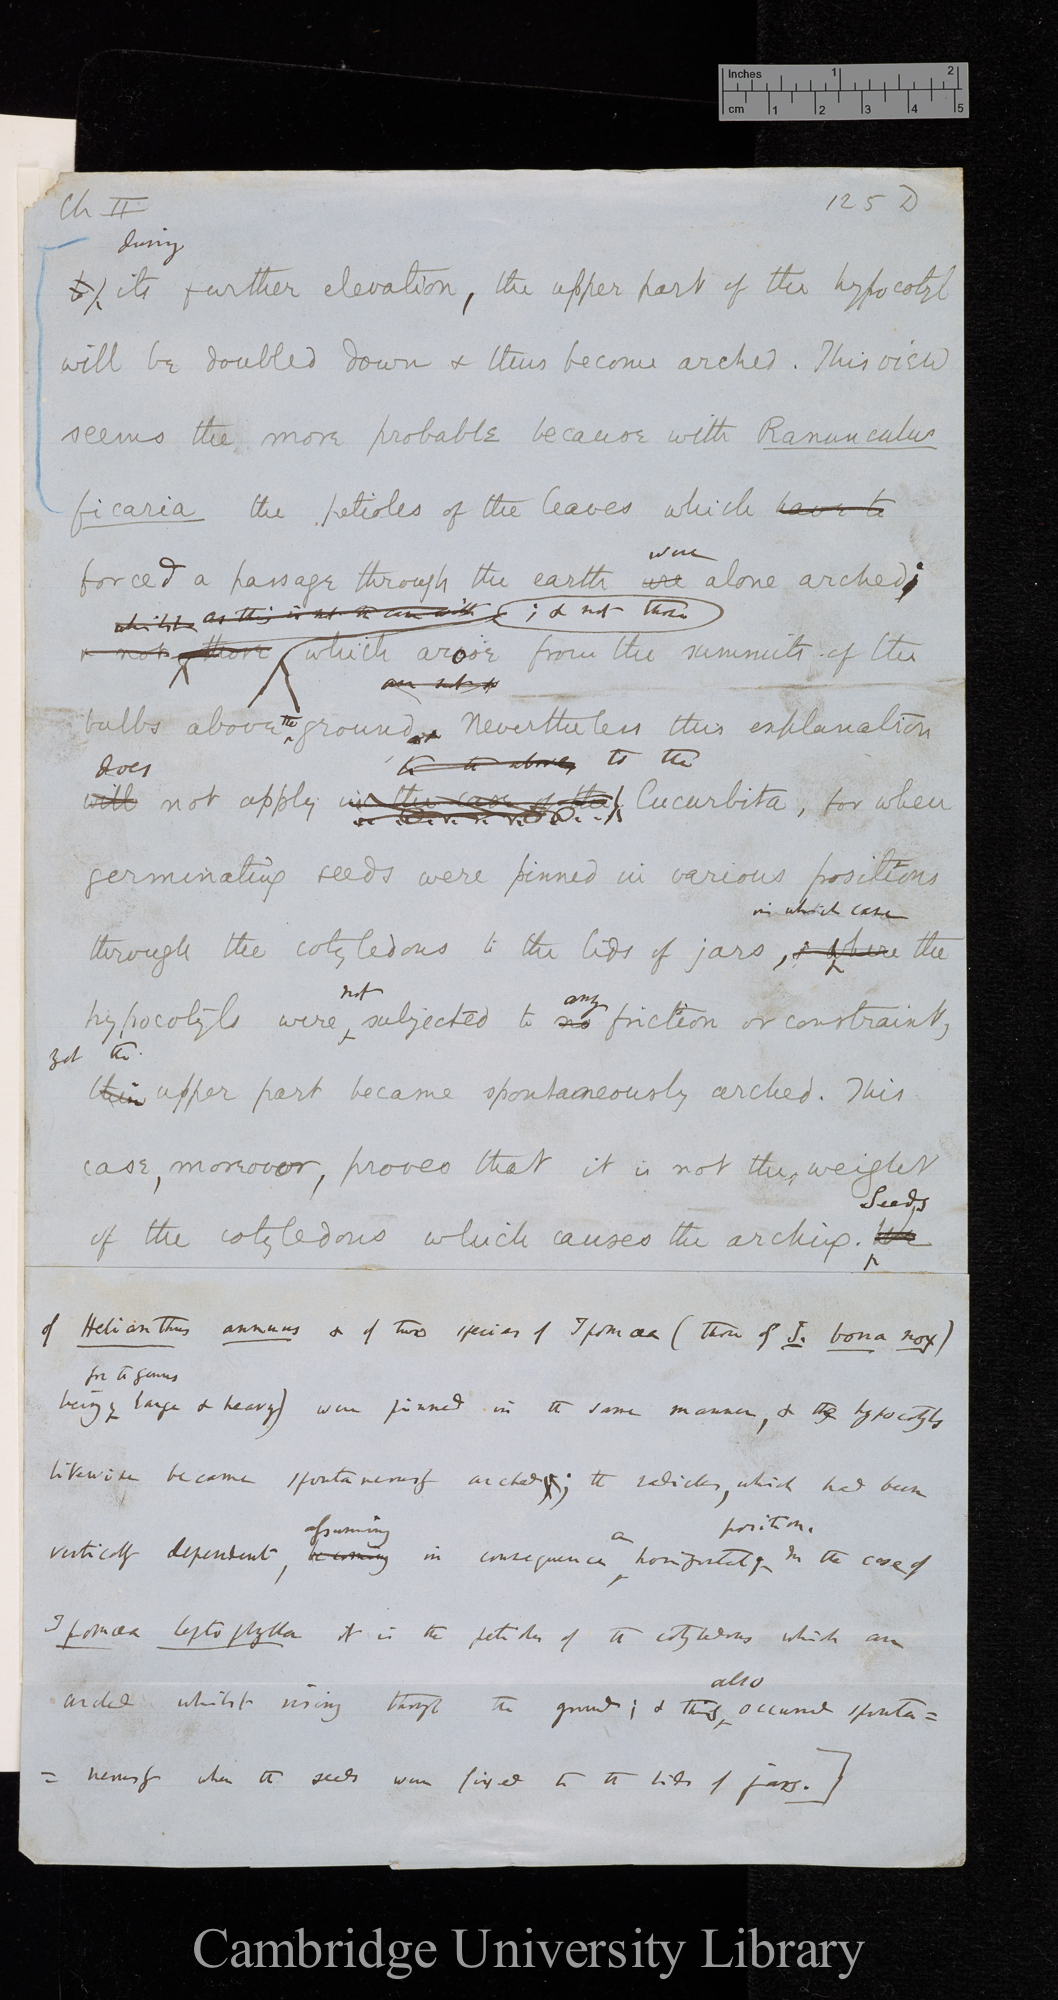 Inches 1 2
cm 1 2 3 4 5
Ch II 125 D
during
by its further elevation, the upper part of the hypocotyl
will be doubled down & thus become arched. This view
seems the more probable because with Ranunculus
ficaria the petioles of the leaves which have to
were
forced a passage through the earth are alone arched;
whilst as this is not the case with ; & not those
& not those which arose from the summits of the
bulbs above the ground. Nevertheless this explanation
does to the above to the
will not apply in the case of the Cucurbita, for when
germinating seeds were pinned in various positions
in which case
through the cotyledons to the lids of jars, & where the
not any
hypocotyls were subjected to no friction or constraint,
yet the
their upper part became spontaneously arched. This
case, moreover, proves that it is not the weight
Seeds
of the cotyledons which causes the arching.
of Helianthus annuus & of two species of Ipomœa (those of I. bona nox)
for the genus
being large & heavy) were pinned in the same manner, & the hypocotyls
likewise became spontaneously arched; the radicles, which had been
assuming a position.
vertically dependent, becoming in consequence horizontal In the case of
Ipomœa leptophylla it is the petioles of the cotyledons which are
also
arched whilst rising through the ground; & this occurred sponta=
=neously when the seeds were fixed to the lids of jars.]
Cambridge University Library